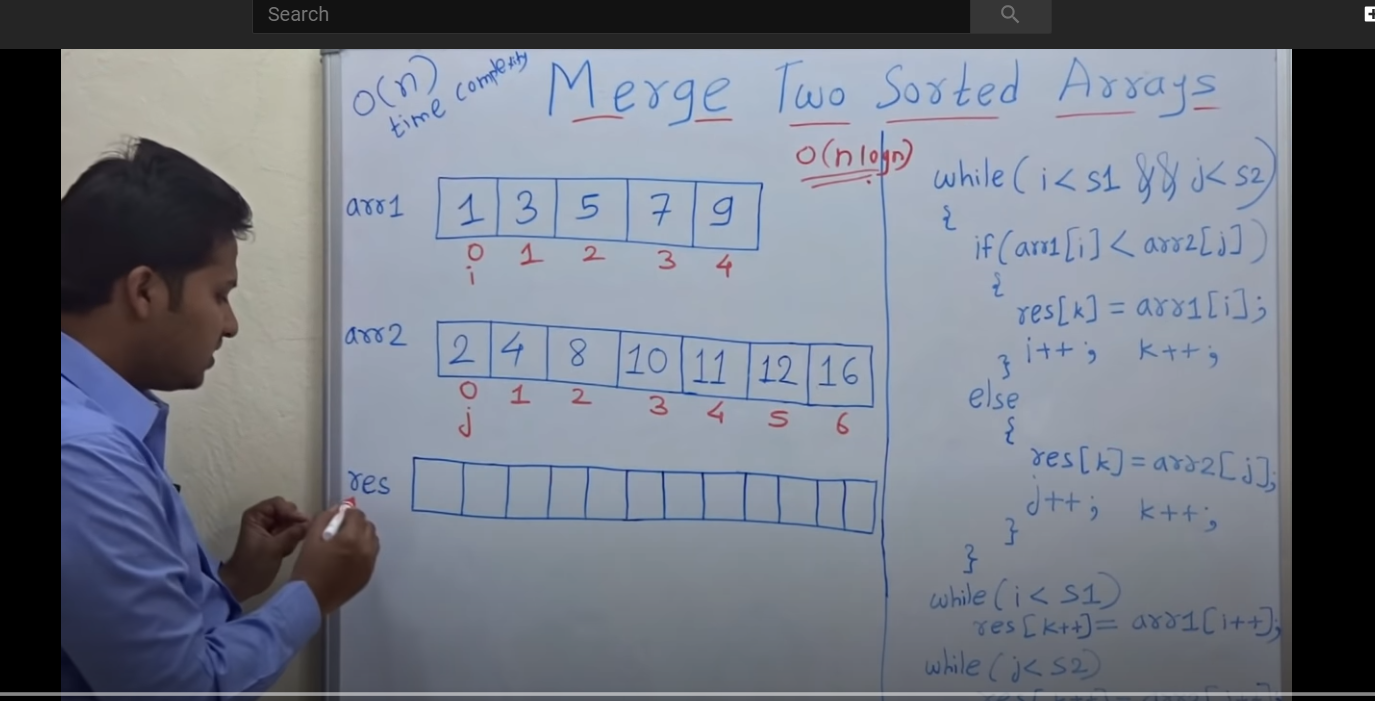 Search
O(n)
time complexity
Merge Two Sorted Arrays
O(nlogn)
arr1
1 3 5 7 9
0 1 2 3 4
i
arr2
2 4 8 10 11 12 16
0 1 2 3 4 5 6
j
res
while(i<s1 && j<s2)
{
if(arr1[i] < arr2[j])
{
res[k] = arr1[i];
i++; k++;
}
else
{
res[k]=arr2[j];
j++; k++;
}
}
while(i< s1)
res[k++]= arr1[i++];
while(j< s2)